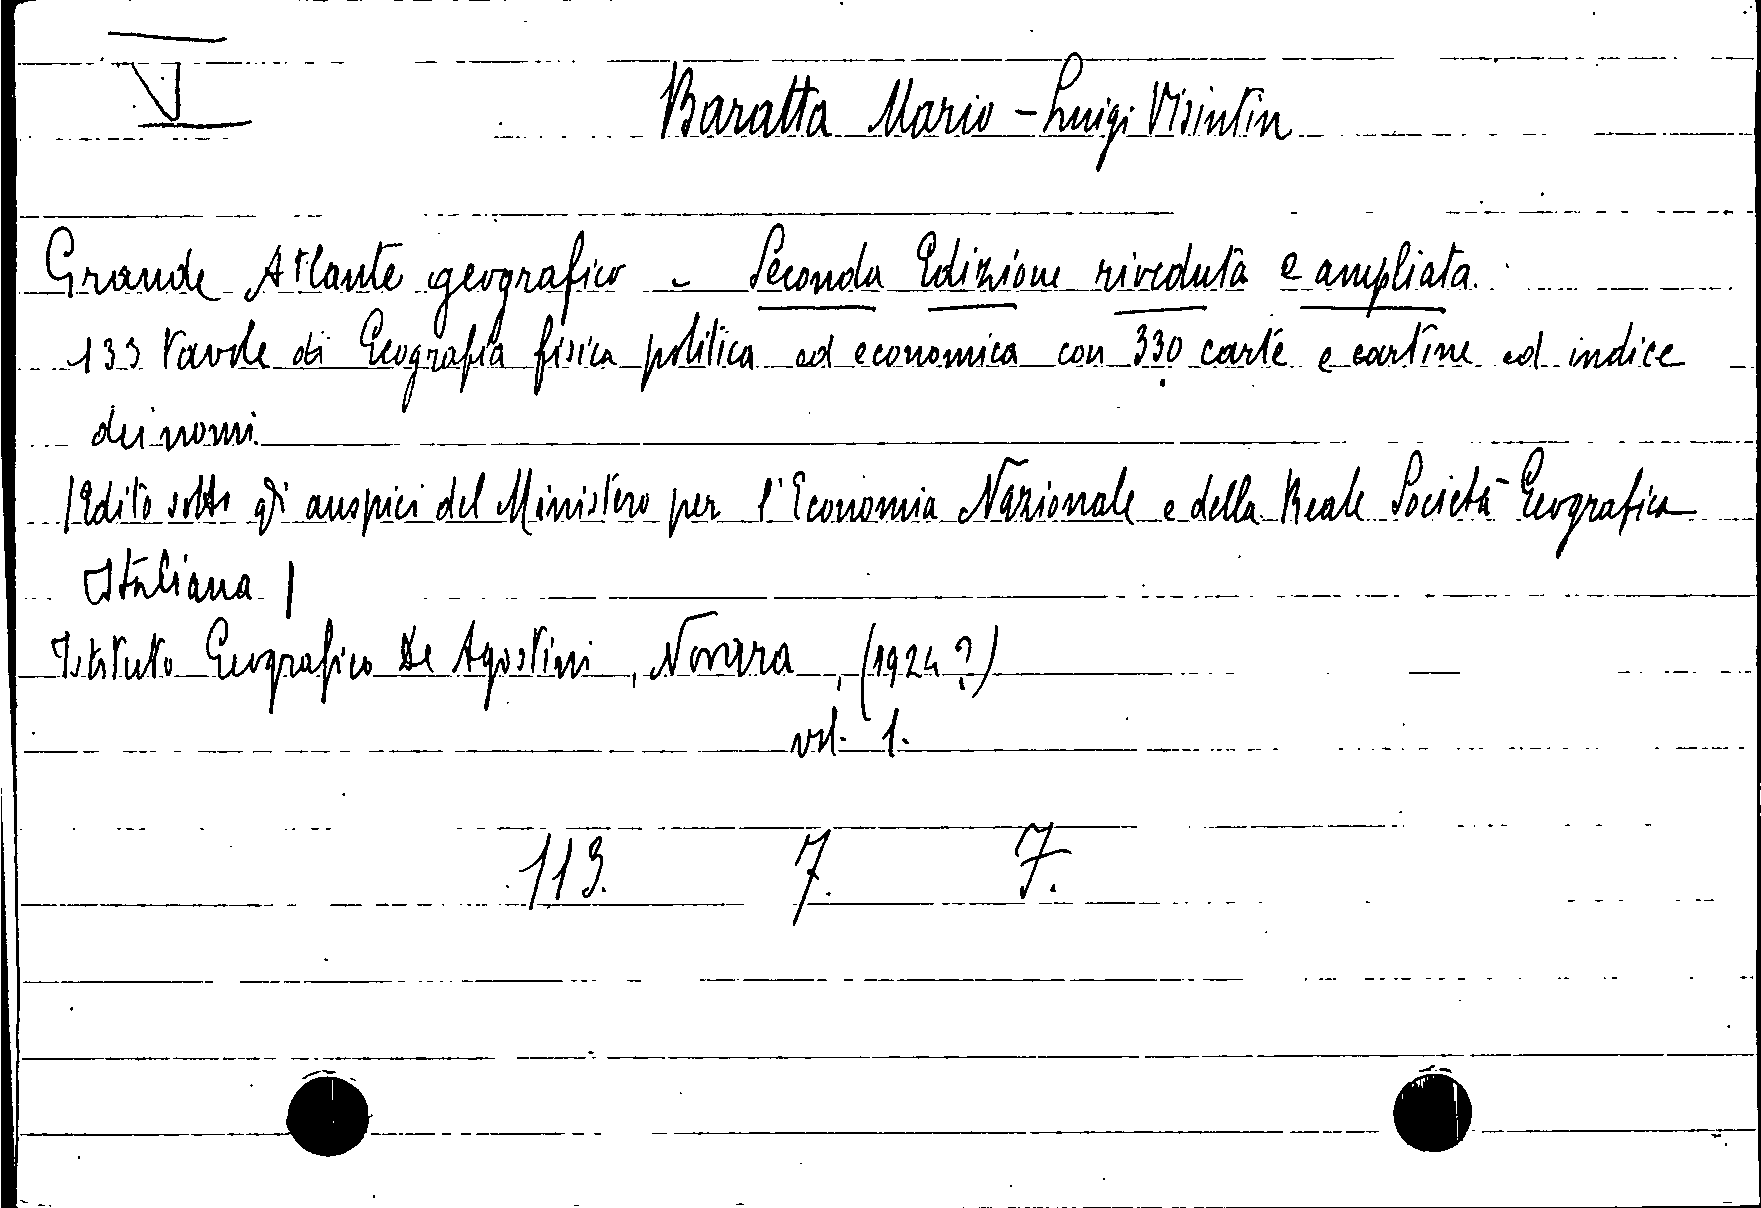 V
Baratta Mario - Luigi Visintin
Grande Atlante geografico - Seconda Edizione riveduta e ampliata.
133 tavole di Geografia fisica politica ed economica con 330 carte e cartine ed indice
dei nomi.
|Edito sotto gli auspici del Ministero per l'Economia Nazionale e della Reale Società Geografica
Italiana |
Istituto Geografico De Agostini, Novara, (1924?)
vol. 1.
113. 7. 7.